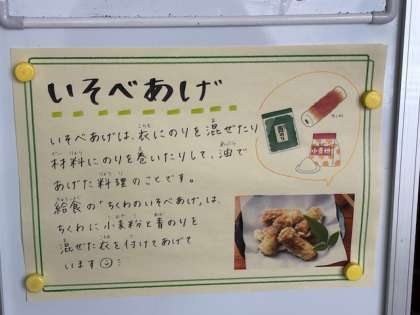 いそべあげ
いそべあげは、衣にのりを混ぜたり
材料にのりを巻いたりして、油で
あげた料理のことです。
給食の"ちくわのいそべあげ"は、
ちくわに小麦粉と青のりを
混ぜた衣を付けてあげて
います
青のり
ちくわ
小麦粉